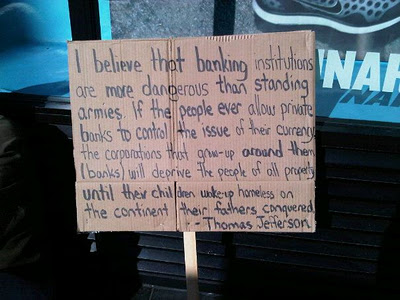 I believe that banking institutions
are more dangerous than standing
armies. If the people ever allow private
banks to control the issue of their currency
the corporations that grow-up around them
(banks) will deprive the people of all property
until their children wake-up homeless on
the continent their fathers conquered
-- Thomas Jefferson